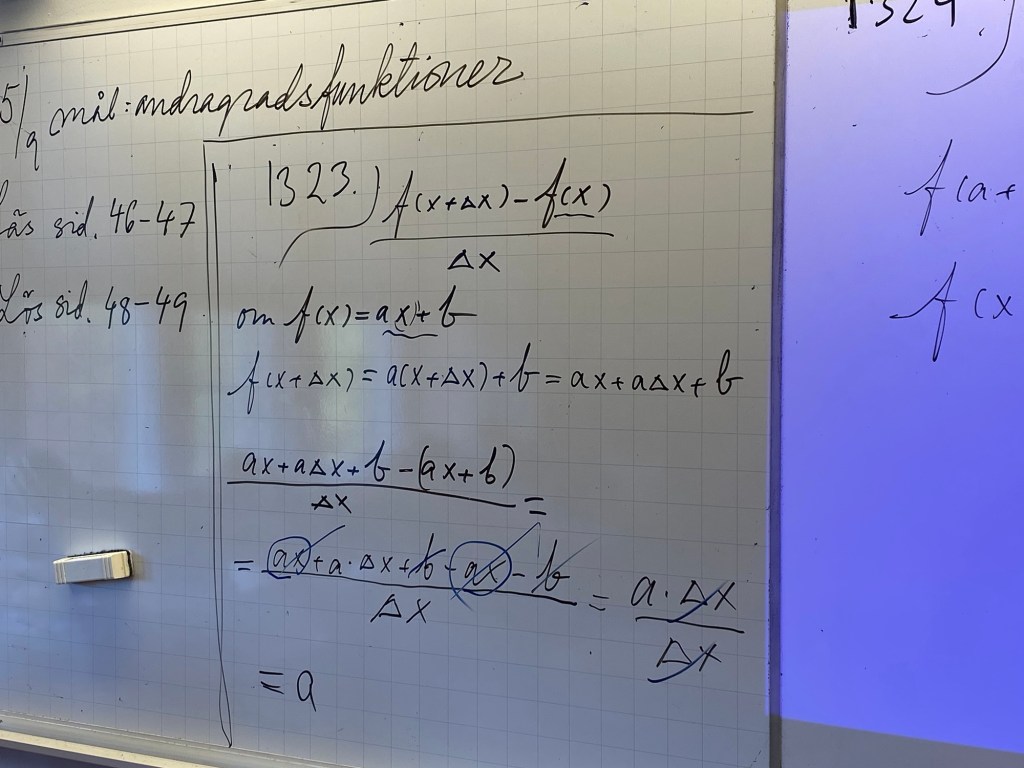 5/9 mål: andragradsfunktioner
Läs sid. 46-47
Lös sid. 48-49
1323.) f(x+Δx) - f(x)
Δx
om f(x) = ax + b
f(x+Δx) = a(x+Δx) + b = ax + aΔx + b
ax + aΔx + b - (ax + b)
Δx =
= ax + a · Δx + b - ax - b = a · Δx
Δx Δx
= a
1324)
f(a+
f(x